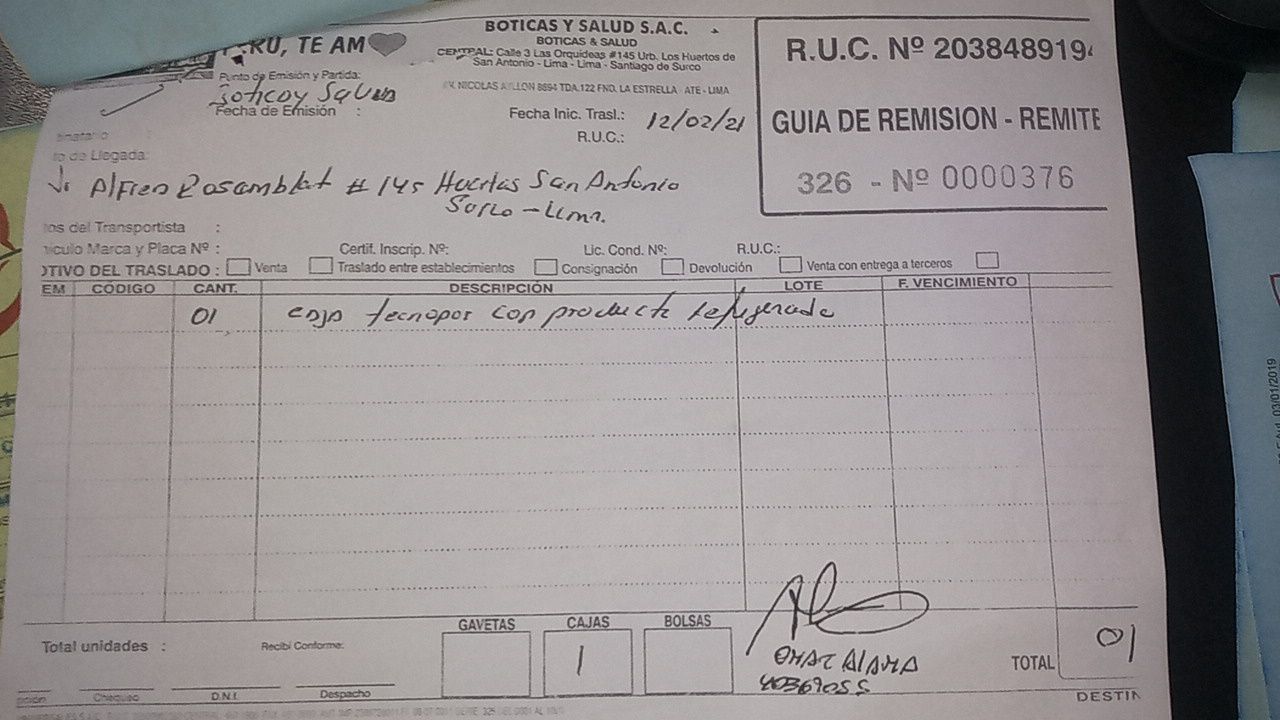 PERU, TE AM
BOTICAS Y SALUD S.A.C.
BOTICAS & SALUD
CENTRAL: Calle 3 Las Orquideas #145 Urb. Los Huertos de
San Antonio - Lima - Lima - Santiago de Surco
AV. NICOLAS AYLLON 8694 TDA.122 FND. LA ESTRELLA - ATE - LIMA
R.U.C. Nº 2038489194
GUIA DE REMISION - REMITE
326 - Nº 0000376
Punto de Emisión y Partida:
Boticas y Salud
Fecha de Emisión :
Fecha Inic. Trasl.: 12/02/21
R.U.C.:
inatario
to de Llegada:
Alfred Rosamblat # 145 Huertas San Antonio
Surco - Lima.
tos del Transportista :
iculo Marca y Placa Nº : Certif. Inscrip. Nº: Lic. Cond. Nº: R.U.C.:
OTIVO DEL TRASLADO : Venta Traslado entre establecimientos Consignación Devolución Venta con entrega a terceros
EM CÓDIGO CANT. DESCRIPCIÓN LOTE F. VENCIMIENTO
01 caja tecnopor con producto refrigerado
Total unidades : Recibí Conforme: GAVETAS CAJAS BOLSAS
1
OMAR ALAMA
40369055
TOTAL 01
Chequeo D.N.I. Despacho
DESTIN